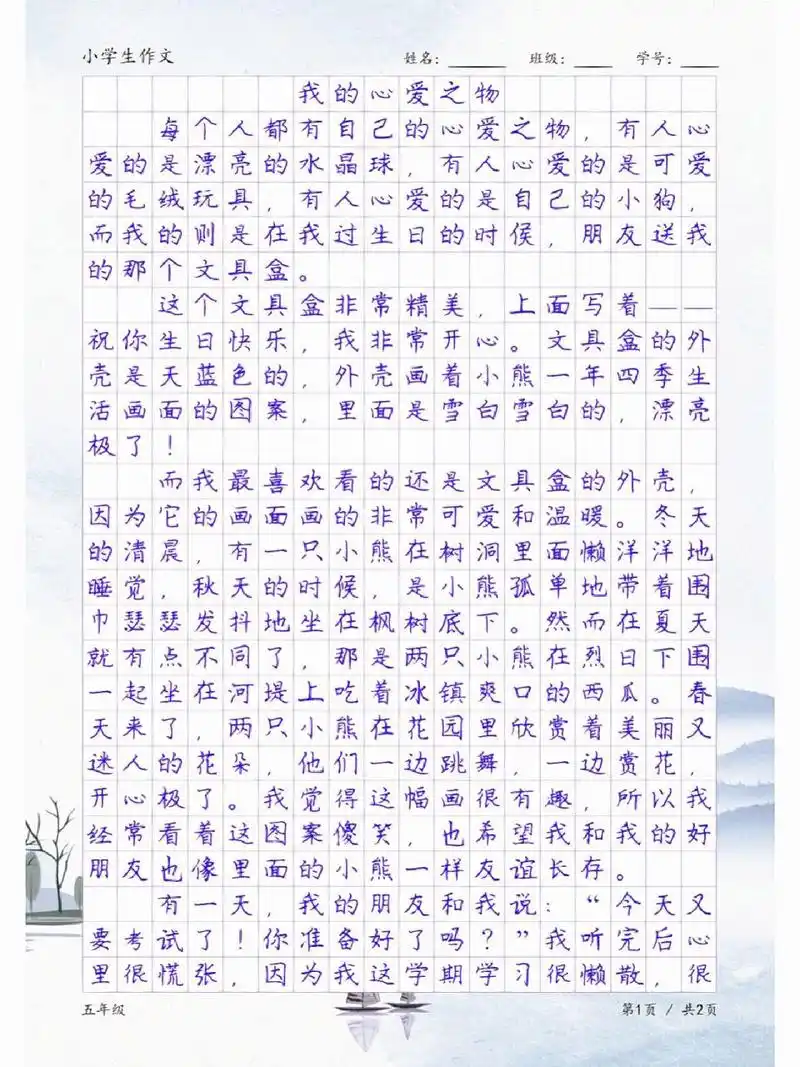 小学生作文 姓名：______ 班级：____ 学号：____
我的心爱之物
每个人都有自己的心爱之物，有人心
爱的是漂亮的水晶球，有人心爱的是可爱
的毛绒玩具，有人心爱的是自己的小狗，
而我的则是在我过生日的时候，朋友送我
的那个文具盒。
这个文具盒非常精美，上面写着——
祝你生日快乐，我非常开心。文具盒的外
壳是天蓝色的，外壳画着小熊一年四季生
活画面的图案，里面是雪白雪白的，漂亮
极了！
而我最喜欢看的还是文具盒的外壳，
因为它的画面画的非常可爱和温暖。冬天
的清晨，有一只小熊在树洞里面懒洋洋地
睡觉，秋天的时候，是小熊孤单地带着围
巾瑟瑟发抖地坐在枫树底下。然而在夏天
就有点不同了，那是两只小熊在烈日下围
一起坐在河堤上吃着冰镇爽口的西瓜。春
天来了，两只小熊在花园里欣赏着美丽又
迷人的花朵，他们一边跳舞，一边赏花，
开心极了。我觉得这幅画很有趣，所以我
经常看着这图案傻笑，也希望我和我的好
朋友也像里面的小熊一样友谊长存。
有一天，我的朋友和我说：“今天又
要考试了！你准备好了吗？”我听完后心
里很慌张，因为我这学期学习很懒散，很
五年级 第1页 / 共2页